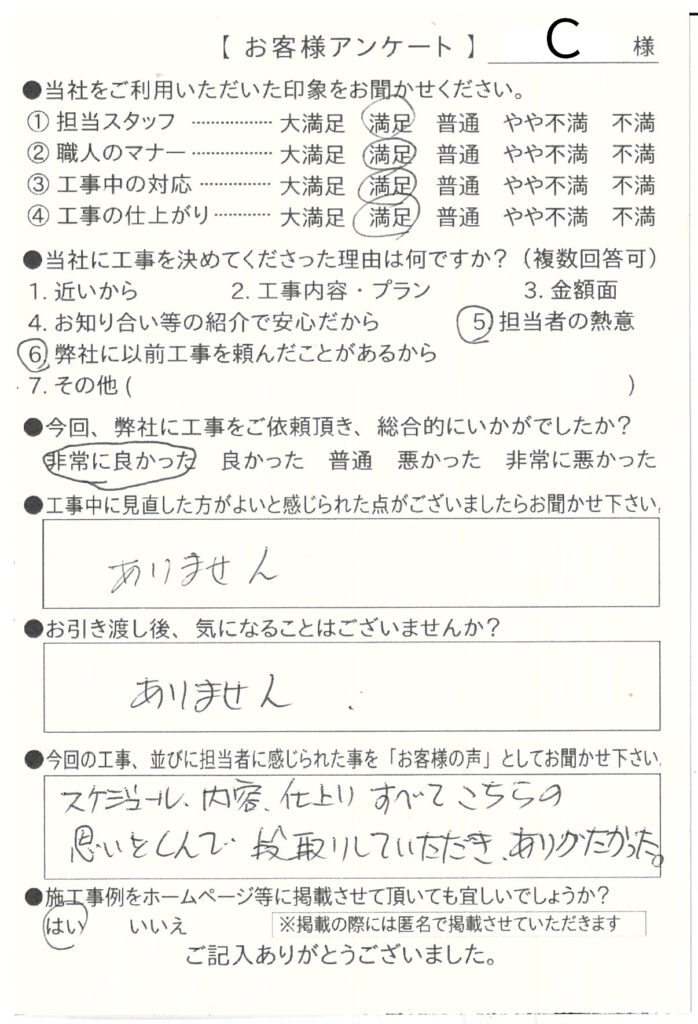 【 お客様アンケート 】 C 様
●当社をご利用いただいた印象をお聞かせください。
① 担当スタッフ ‥‥‥‥‥‥ 大満足 満足 普通 やや不満 不満
② 職人のマナー‥‥‥‥‥‥ 大満足 満足 普通 やや不満 不満
③ 工事中の対応 ‥‥‥‥‥ 大満足 満足 普通 やや不満 不満
④ 工事の仕上がり‥‥‥‥ 大満足 満足 普通 やや不満 不満
●当社に工事を決めてくださった理由は何ですか？（複数回答可）
1. 近いから 2. 工事内容・プラン 3. 金額面
4. お知り合い等の紹介で安心だから 5. 担当者の熱意
6. 弊社に以前工事を頼んだことがあるから
7. その他 ( )
●今回、弊社に工事をご依頼頂き、総合的にいかがでしたか？
非常に良かった 良かった 普通 悪かった 非常に悪かった
●工事中に見直した方がよいと感じられた点がございましたらお聞かせ下さい。
ありません
●お引き渡し後、気になることはございませんか？
ありません
●今回の工事、並びに担当者に感じられた事を「お客様の声」としてお聞かせ下さい。
スケジュール、内容、仕上り すべて こちらの
思いをくんで 段取りしていただき、ありがたかった。
●施工事例をホームページ等に掲載させて頂いても宜しいでしょうか？
はい いいえ ※掲載の際には匿名で掲載させていただきます
ご記入ありがとうございました。